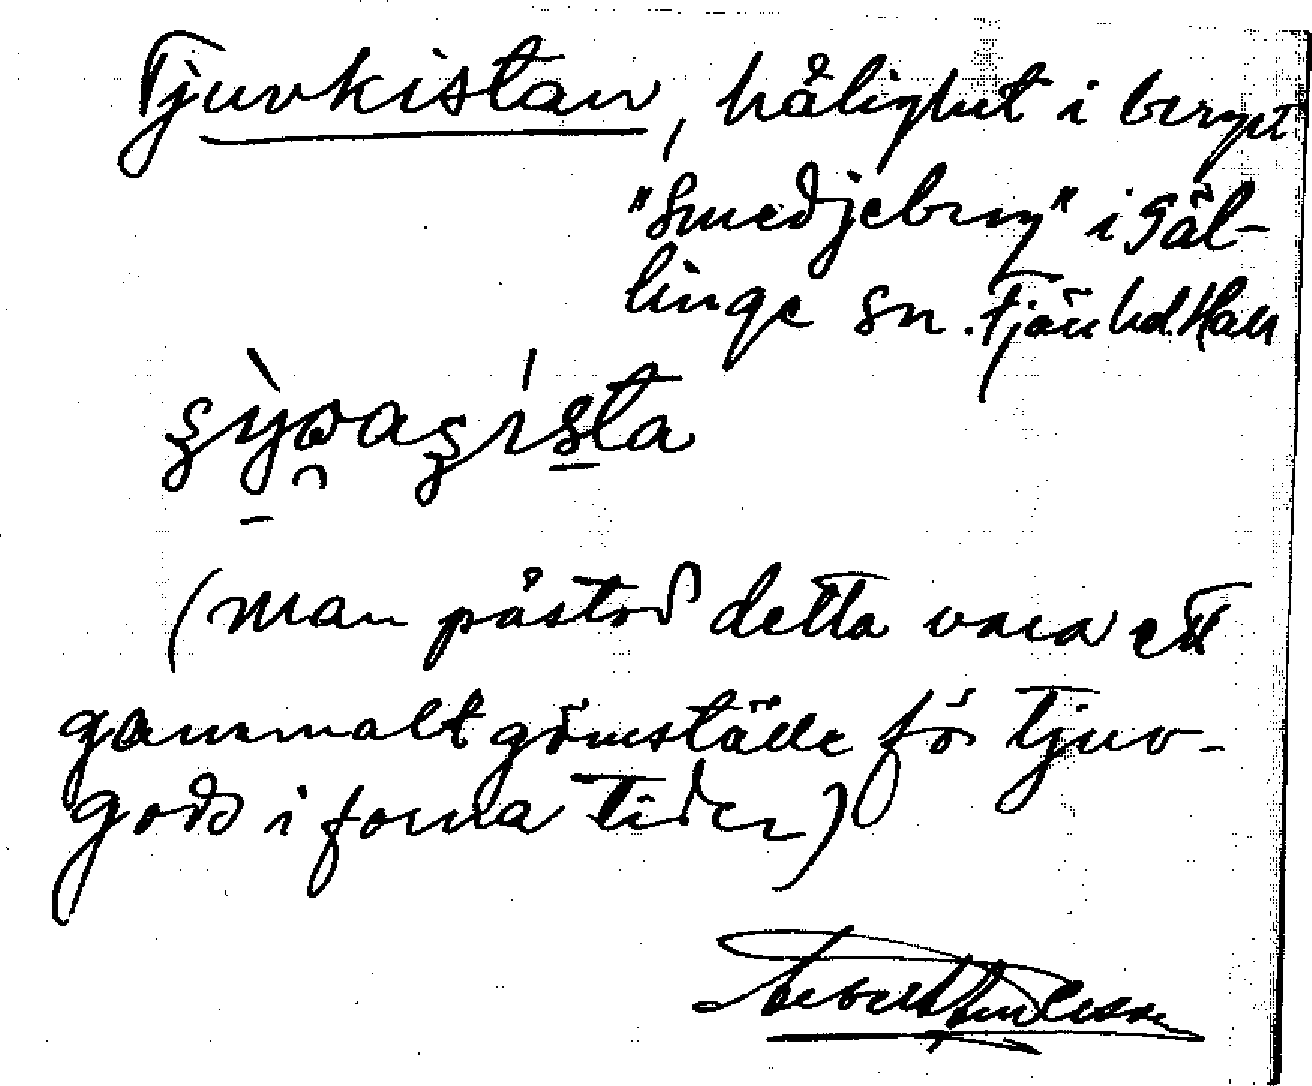 Tjuvkistan, hålighet i berget
"Smedjeberg" i Gäl-
linge sn. Fjäre hd. Hall
(man påstod detta vara ett
gammalt gömställe för tjuv-
gods i forna tider)